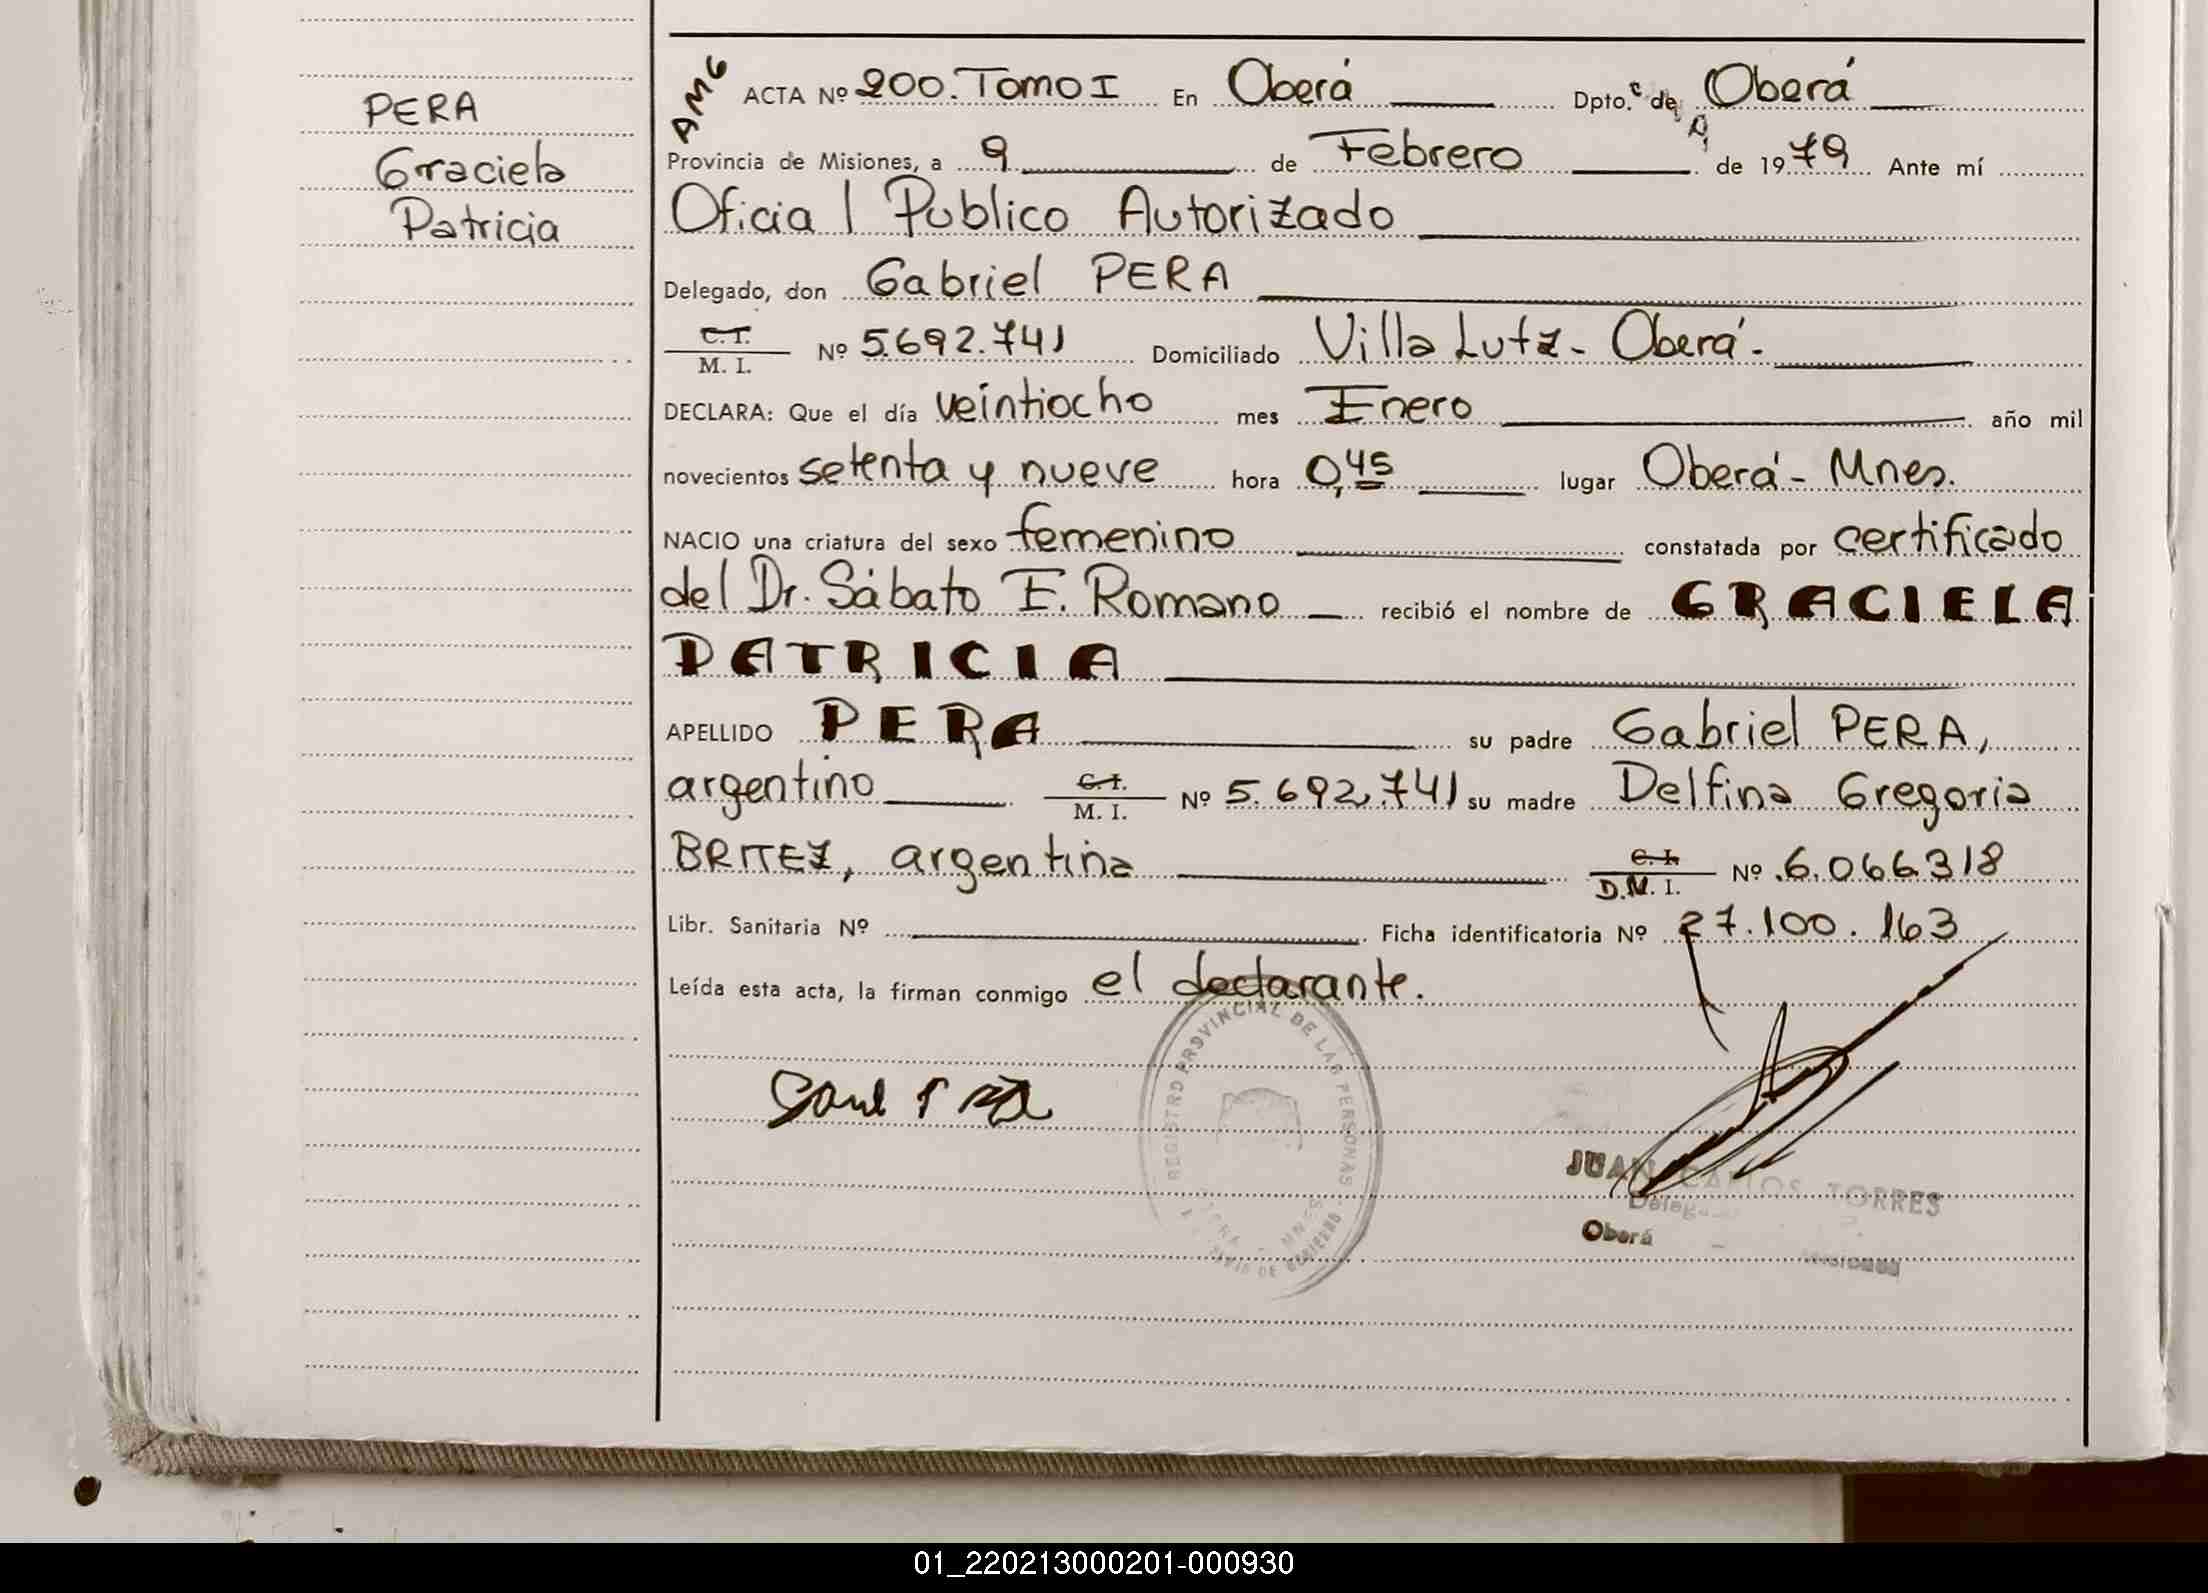 PERA
Graciela
Patricia
AMG
ACTA Nº 200. Tomo I En Oberá Dpto. de Oberá
Provincia de Misiones, a 9 de Febrero de 1979 Ante mí
Oficial Publico Autorizado
Delegado, don Gabriel PERA
C.I. M. I. Nº 5.692.741 Domiciliado Villa Lutz - Oberá -
DECLARA: Que el día veintiocho mes Enero año mil
novecientos setenta y nueve hora 0,45 lugar Oberá - Mnes.
NACIO una criatura del sexo femenino constatada por certificado
del Dr. Sábato E. Romano recibió el nombre de GRACIELA
PATRICIA
APELLIDO PERA su padre Gabriel PERA,
argentino C.I. M. I. Nº 5.692.741 su madre Delfina Gregoria
BRITEZ, argentina C.I. D.M. I. Nº 6.066.318
Libr. Sanitaria Nº Ficha identificatoria Nº 27.100.163
Leída esta acta, la firman conmigo el declarante.
REGISTRO PROVINCIAL DE LAS PERSONAS
JUAN CARLOS TORRES
Oberá
01_220213000201-000930